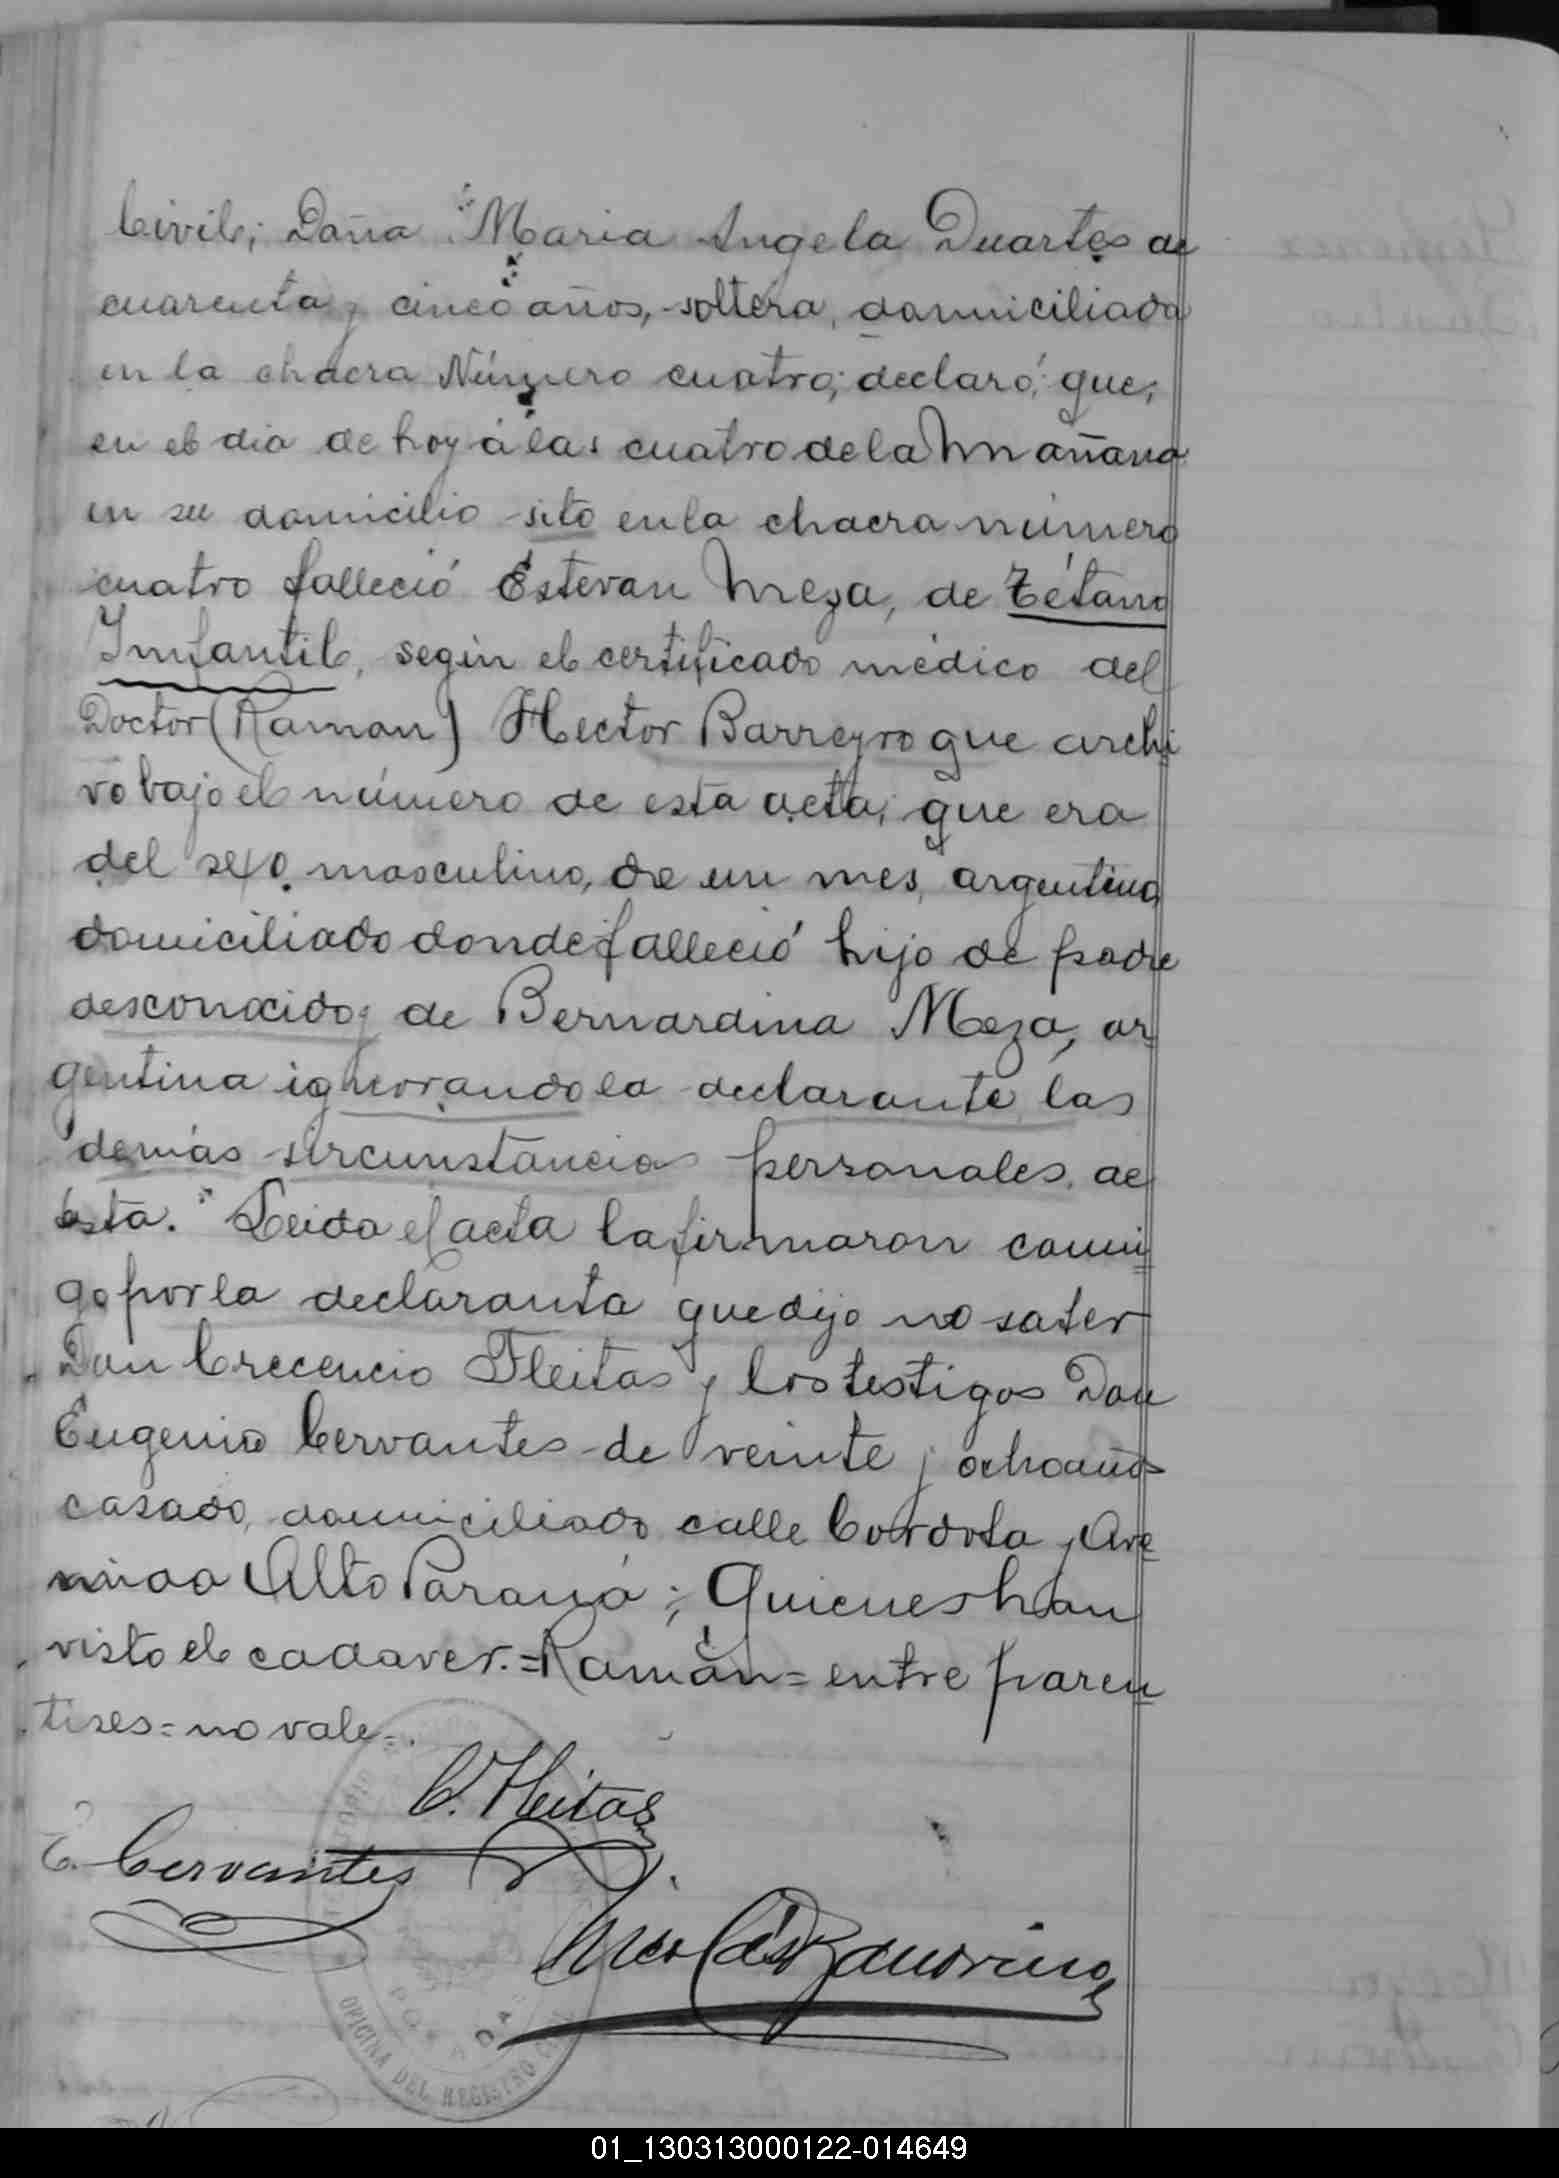 Civil; Doña Maria Angela Duartes de
cuarenta y cinco años, soltera, domiciliada
en la chacra Número cuatro; declaró; que;
en el dia de hoy á las cuatro de la Mañana
en su domicilio sito en la chacra número
cuatro falleció Estevan Meza, de Tétano
Imfantil, según el certificado médico del
Doctor (Raman) Hector Barreyro que archi
vo bajo el número de esta acta; que era
del sexo masculino, de un mes, argentino
domiciliado donde falleció hijo de padre
desconocido y de Bernardina Meza, ar-
gentina ignorando la declarante las
demás sircunstancias personales de
esta. Leida el acta la firmaron conmi=
go por la declaranta que dijo no saber
Don Crecencio Fleitas y los testigos Don
Eugenio Cervantes de veinte y ocho años
casado, domiciliado calle Cordoba y Ave=
nida Alto Paraná; Quienes han
visto el cadaver.=Ramón= entre paren
tises=no vale=.
C. Fleitas
E. Cervantes
OFICINA DEL REGISTRO CIVIL
01_130313000122-014649